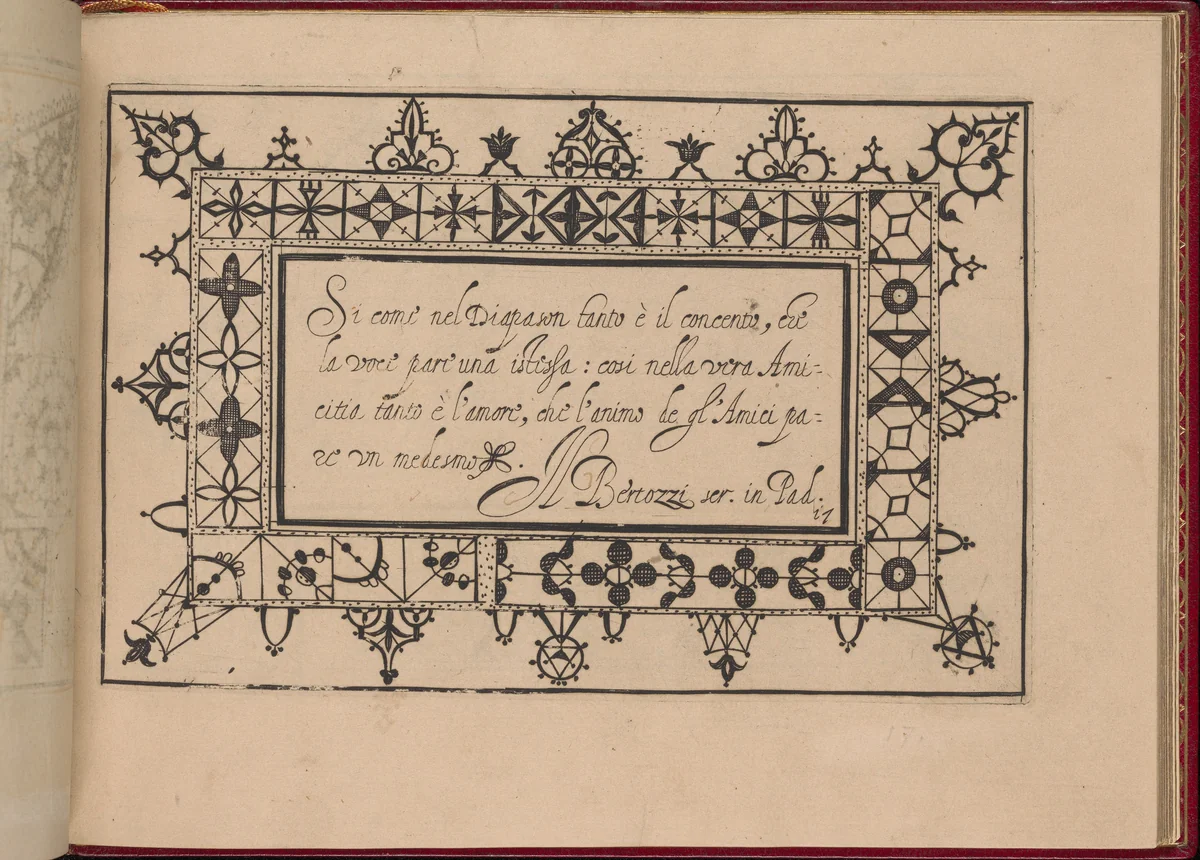 Si come nel Diapason tanto è il concento, che
la voce pare una istessa: cosi nella vera Ami-
citia tanto è l'amore, che l'animo de gl'Amici pa-
re vn medesmo.
Il Bertozzi scr. in Pad.
17